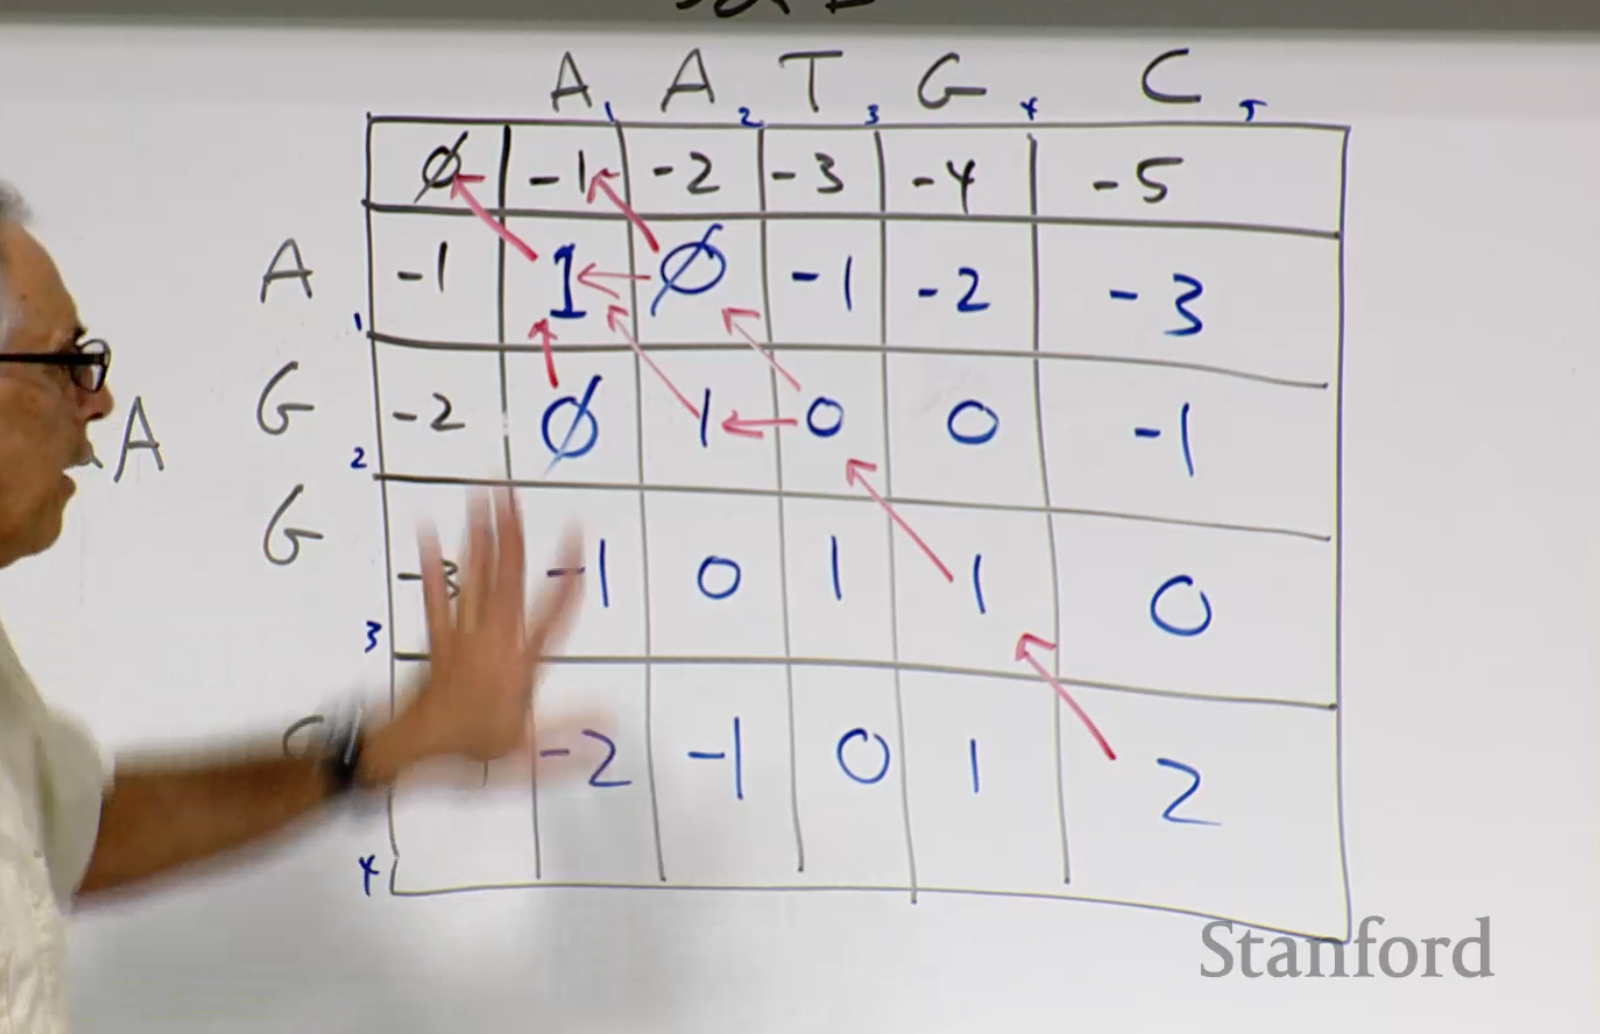 A 1 A 2 T 3 G 4 C 5
∅ -1 -2 -3 -4 -5
A 1 -1 1 ∅ -1 -2 -3
A
G 2 -2 ∅ 1 0 0 -1
G 3 -3 -1 0 1 1 0
4 -2 -1 0 1 2
Stanford